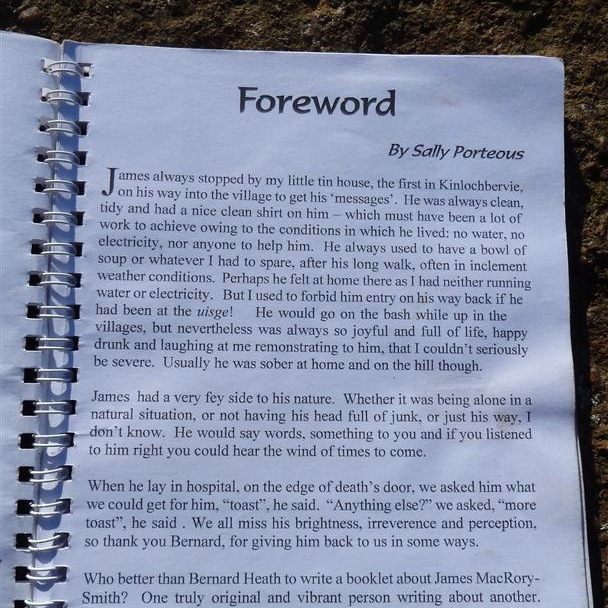 Foreword
By Sally Porteous
James always stopped by my little tin house, the first in Kinlochbervie,
on his way into the village to get his ‘messages’. He was always clean,
tidy and had a nice clean shirt on him – which must have been a lot of
work to achieve owing to the conditions in which he lived: no water, no
electricity, nor anyone to help him. He always used to have a bowl of
soup or whatever I had to spare, after his long walk, often in inclement
weather conditions. Perhaps he felt at home there as I had neither running
water or electricity. But I used to forbid him entry on his way back if he
had been at the uisge! He would go on the bash while up in the
villages, but nevertheless was always so joyful and full of life, happy
drunk and laughing at me remonstrating to him, that I couldn’t seriously
be severe. Usually he was sober at home and on the hill though.
James had a very fey side to his nature. Whether it was being alone in a
natural situation, or not having his head full of junk, or just his way, I
don’t know. He would say words, something to you and if you listened
to him right you could hear the wind of times to come.
When he lay in hospital, on the edge of death’s door, we asked him what
we could get for him, “toast”, he said. “Anything else?” we asked, “more
toast”, he said . We all miss his brightness, irreverence and perception,
so thank you Bernard, for giving him back to us in some ways.
Who better than Bernard Heath to write a booklet about James MacRory-
Smith? One truly original and vibrant person writing about another.